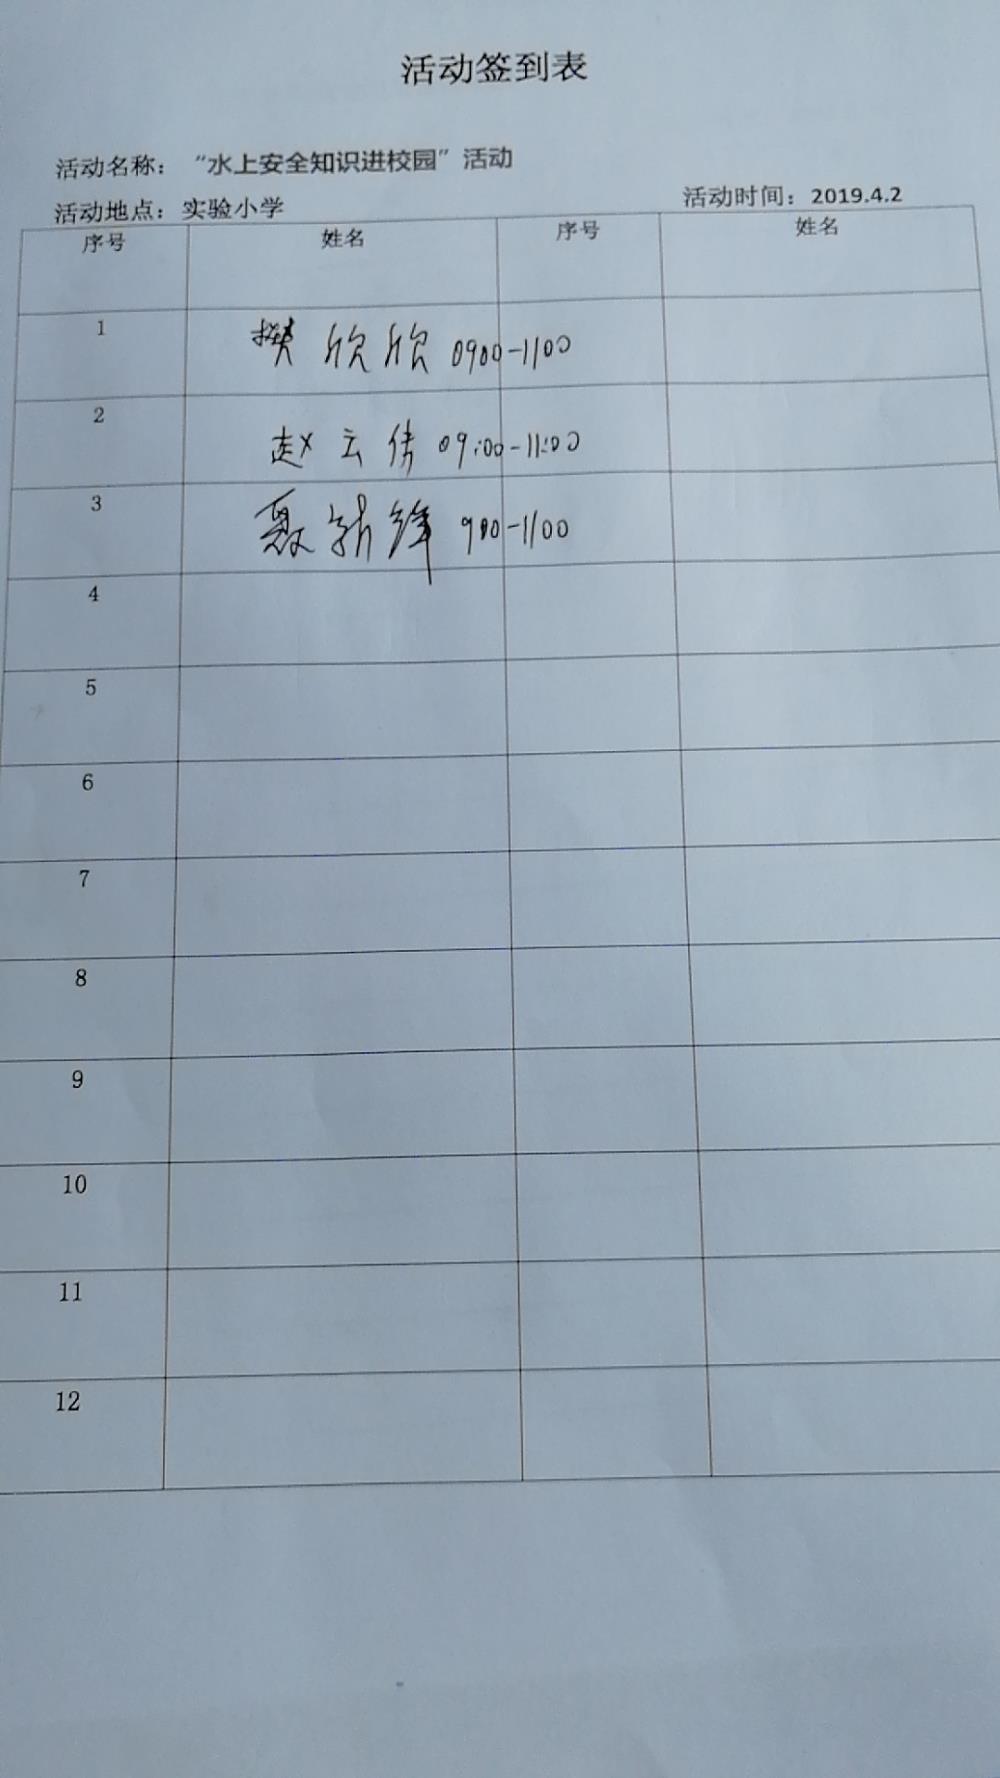 活动签到表
活动名称：“水上安全知识进校园”活动
活动地点：实验小学 活动时间：2019.4.2
序号 姓名 序号 姓名
1 樊欣欣 0900-1100
2 赵云倩 09:00-11:00
3 900-1100
4
5
6
7
8
9
10
11
12